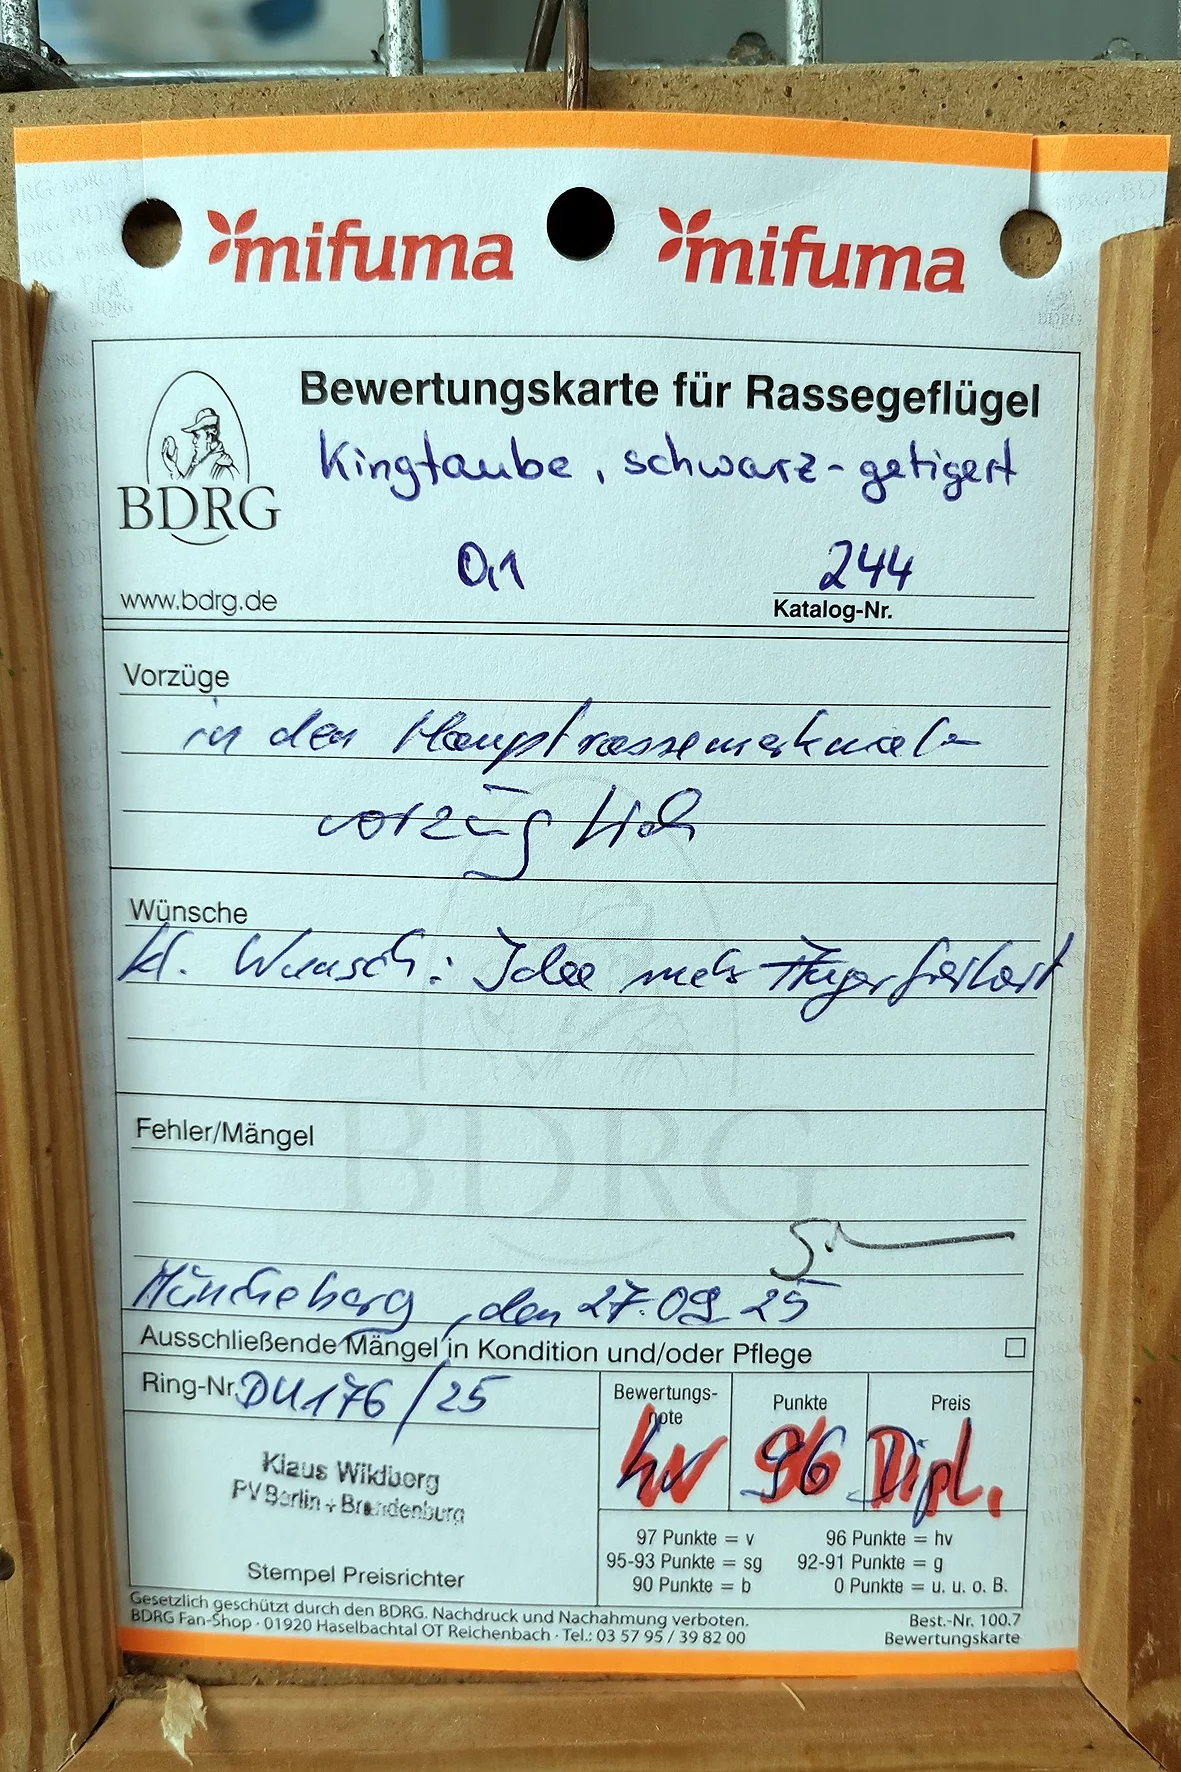 mifuma mifuma
Bewertungskarte für Rassegeflügel
Kingtaube, schwarz-getigert
BDRG
0,1 244
www.bdrg.de Katalog-Nr.
Vorzüge
in den Hauptrassemerkmalen
vorzüglich
Wünsche
kl. Wunsch: Idee mehr
Fehler/Mängel
Müncheberg, den 27.09.25
Ausschließende Mängel in Kondition und/oder Pflege
Ring-Nr. DU176/25
Bewertungs-
note
Punkte
Preis
hv 96 Dipl.
Klaus Wildberg
PV Berlin + Brandenburg
Stempel Preisrichter
97 Punkte = v 96 Punkte = hv
95-93 Punkte = sg 92-91 Punkte = g
90 Punkte = b 0 Punkte = u. u. o. B.
Gesetzlich geschützt durch den BDRG. Nachdruck und Nachahmung verboten.
BDRG Fan-Shop · 01920 Haselbachtal OT Reichenbach · Tel.: 03 57 95 / 39 82 00
Best.-Nr. 100.7
Bewertungskarte